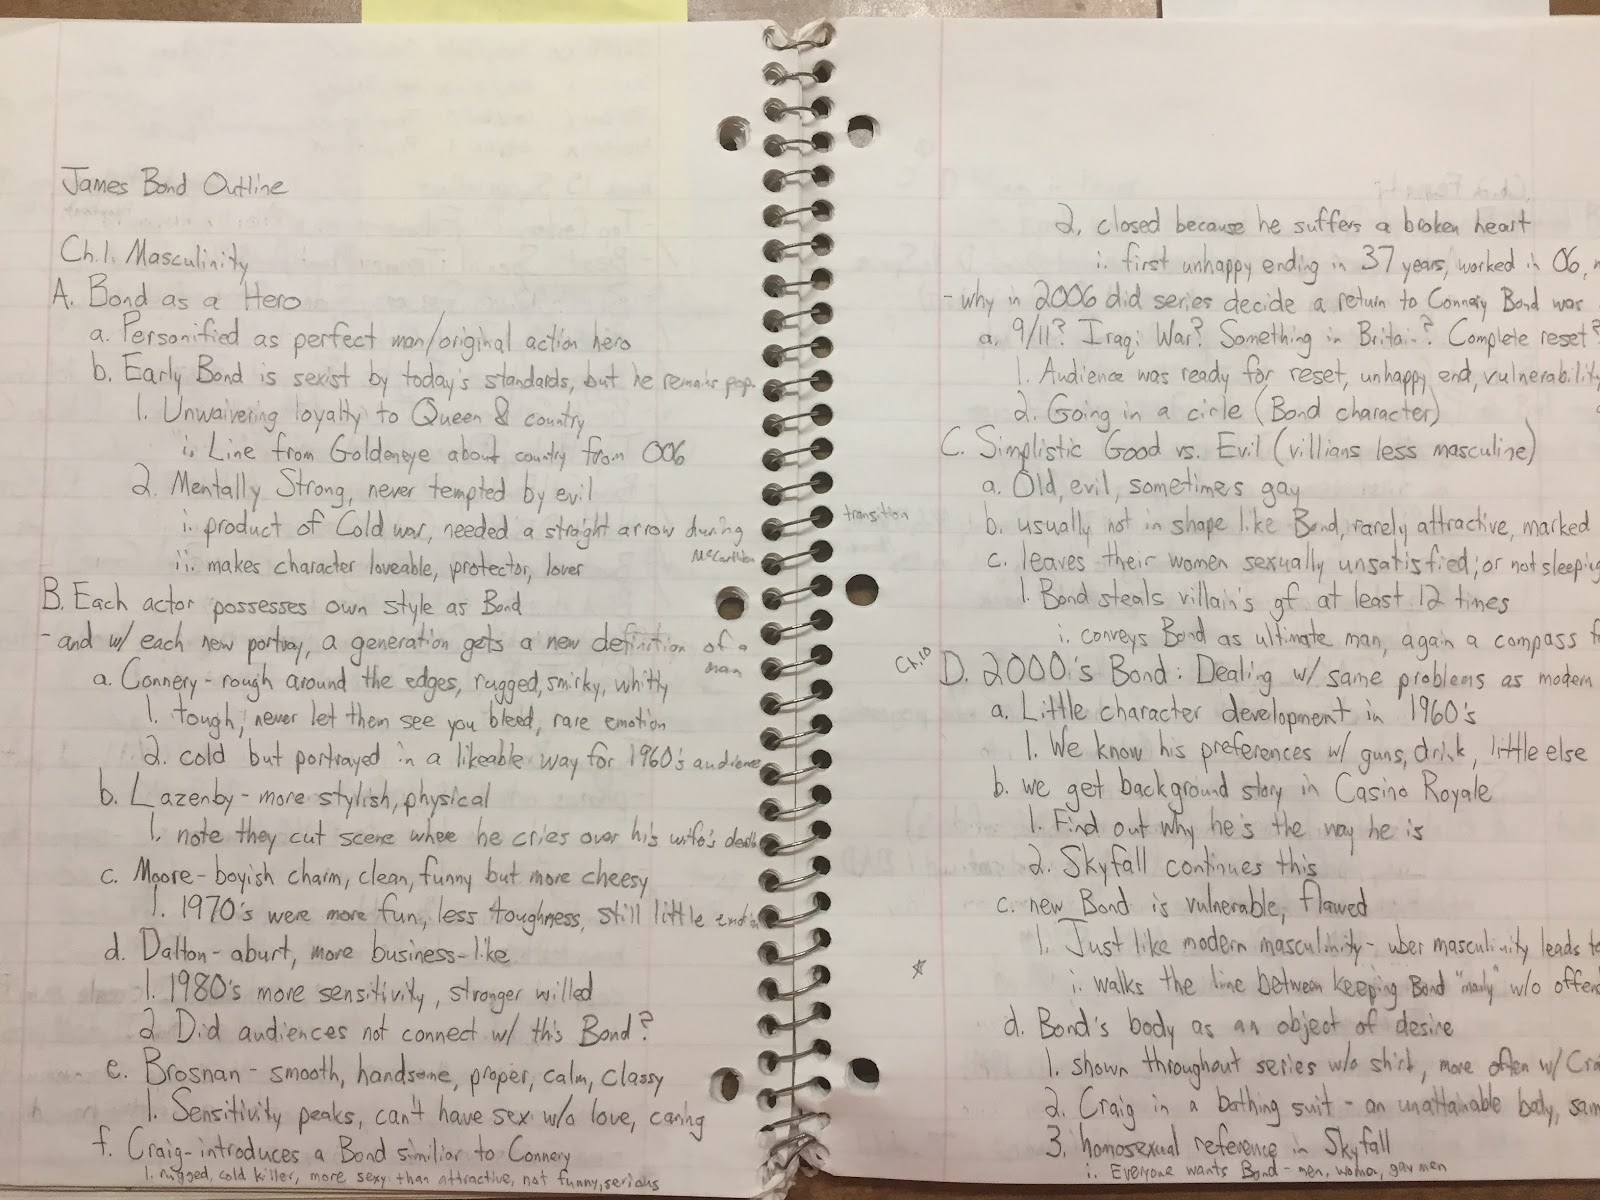 James Bond Outline
Ch.1. Masculinity
A. Bond as a Hero
a. Personified as perfect man/original action hero
b. Early Bond is sexist by today's standards, but he remains pop.
1. Unwaivering loyalty to Queen & country
i. Line from Goldeneye about country from 006
2. Mentally Strong, never tempted by evil
i. product of Cold war, needed a straight arrow during
ii. makes character loveable, protector, lover
B. Each actor possesses own style as Bond
- and w/ each new portray, a generation gets a new definition of a
man
a. Connery - rough around the edges, rugged, smirky, whitty
1. tough, never let them see you bleed, rare emotion
2. cold but portrayed in a likeable way for 1960's audience
b. Lazenby - more stylish, physical
1. note they cut scene where he cries over his wife's death
c. Moore - boyish charm, clean, funny but more cheesy
1. 1970's were more fun, less toughness, still little
d. Dalton - aburt, more business-like
1. 1980's more sensitivity, stronger willed
2 Did audiences not connect w/ this Bond?
e. Brosnan - smooth, handsome, proper, calm, classy
1. Sensitivity peaks, can't have sex w/o love, caring
f. Craig - introduces a Bond similiar to Connery
1. rugged, cold killer, more sexy than attractive, not funny, serious
2. closed because he suffers a broken heart
i. first unhappy ending in 37 years, worked in 06,
- why in 2006 did series decide a return to Connery Bond was
a. 9/11? Iraqi War? Something in Britain? Complete reset?
1. Audience was ready for reset, unhappy end, vulnerability
2. Going in a circle (Bond character)
C. Simplistic Good vs. Evil (villians less masculine)
a. Old, evil, sometimes gay
transition
b. usually not in shape like Bond, rarely attractive, marked
c. leaves their women sexually unsatisfied; or not sleeping
1. Bond steals villain's gf at least 12 times
i. conveys Bond as ultimate man, again a compass
Ch.10
D. 2000's Bond: Dealing w/ same problems as modern
a. Little character development in 1960's
1. We know his preferences w/ guns, drink, little else
b. we get background story in Casino Royale
1. Find out why he's the way he is
2. Skyfall continues this
c. new Bond is vulnerable, flawed
1. Just like modern masculinity - uber masculinity leads
i. walks the line between keeping Bond "manly" w/o
d. Bond's body as an object of desire
1. shown throughout series w/o shirt, more often w/
2. Craig in a bathing suit - an unattainable body,
3. homosexual reference in Skyfall
i. Everyone wants Bond - men, women, gay men